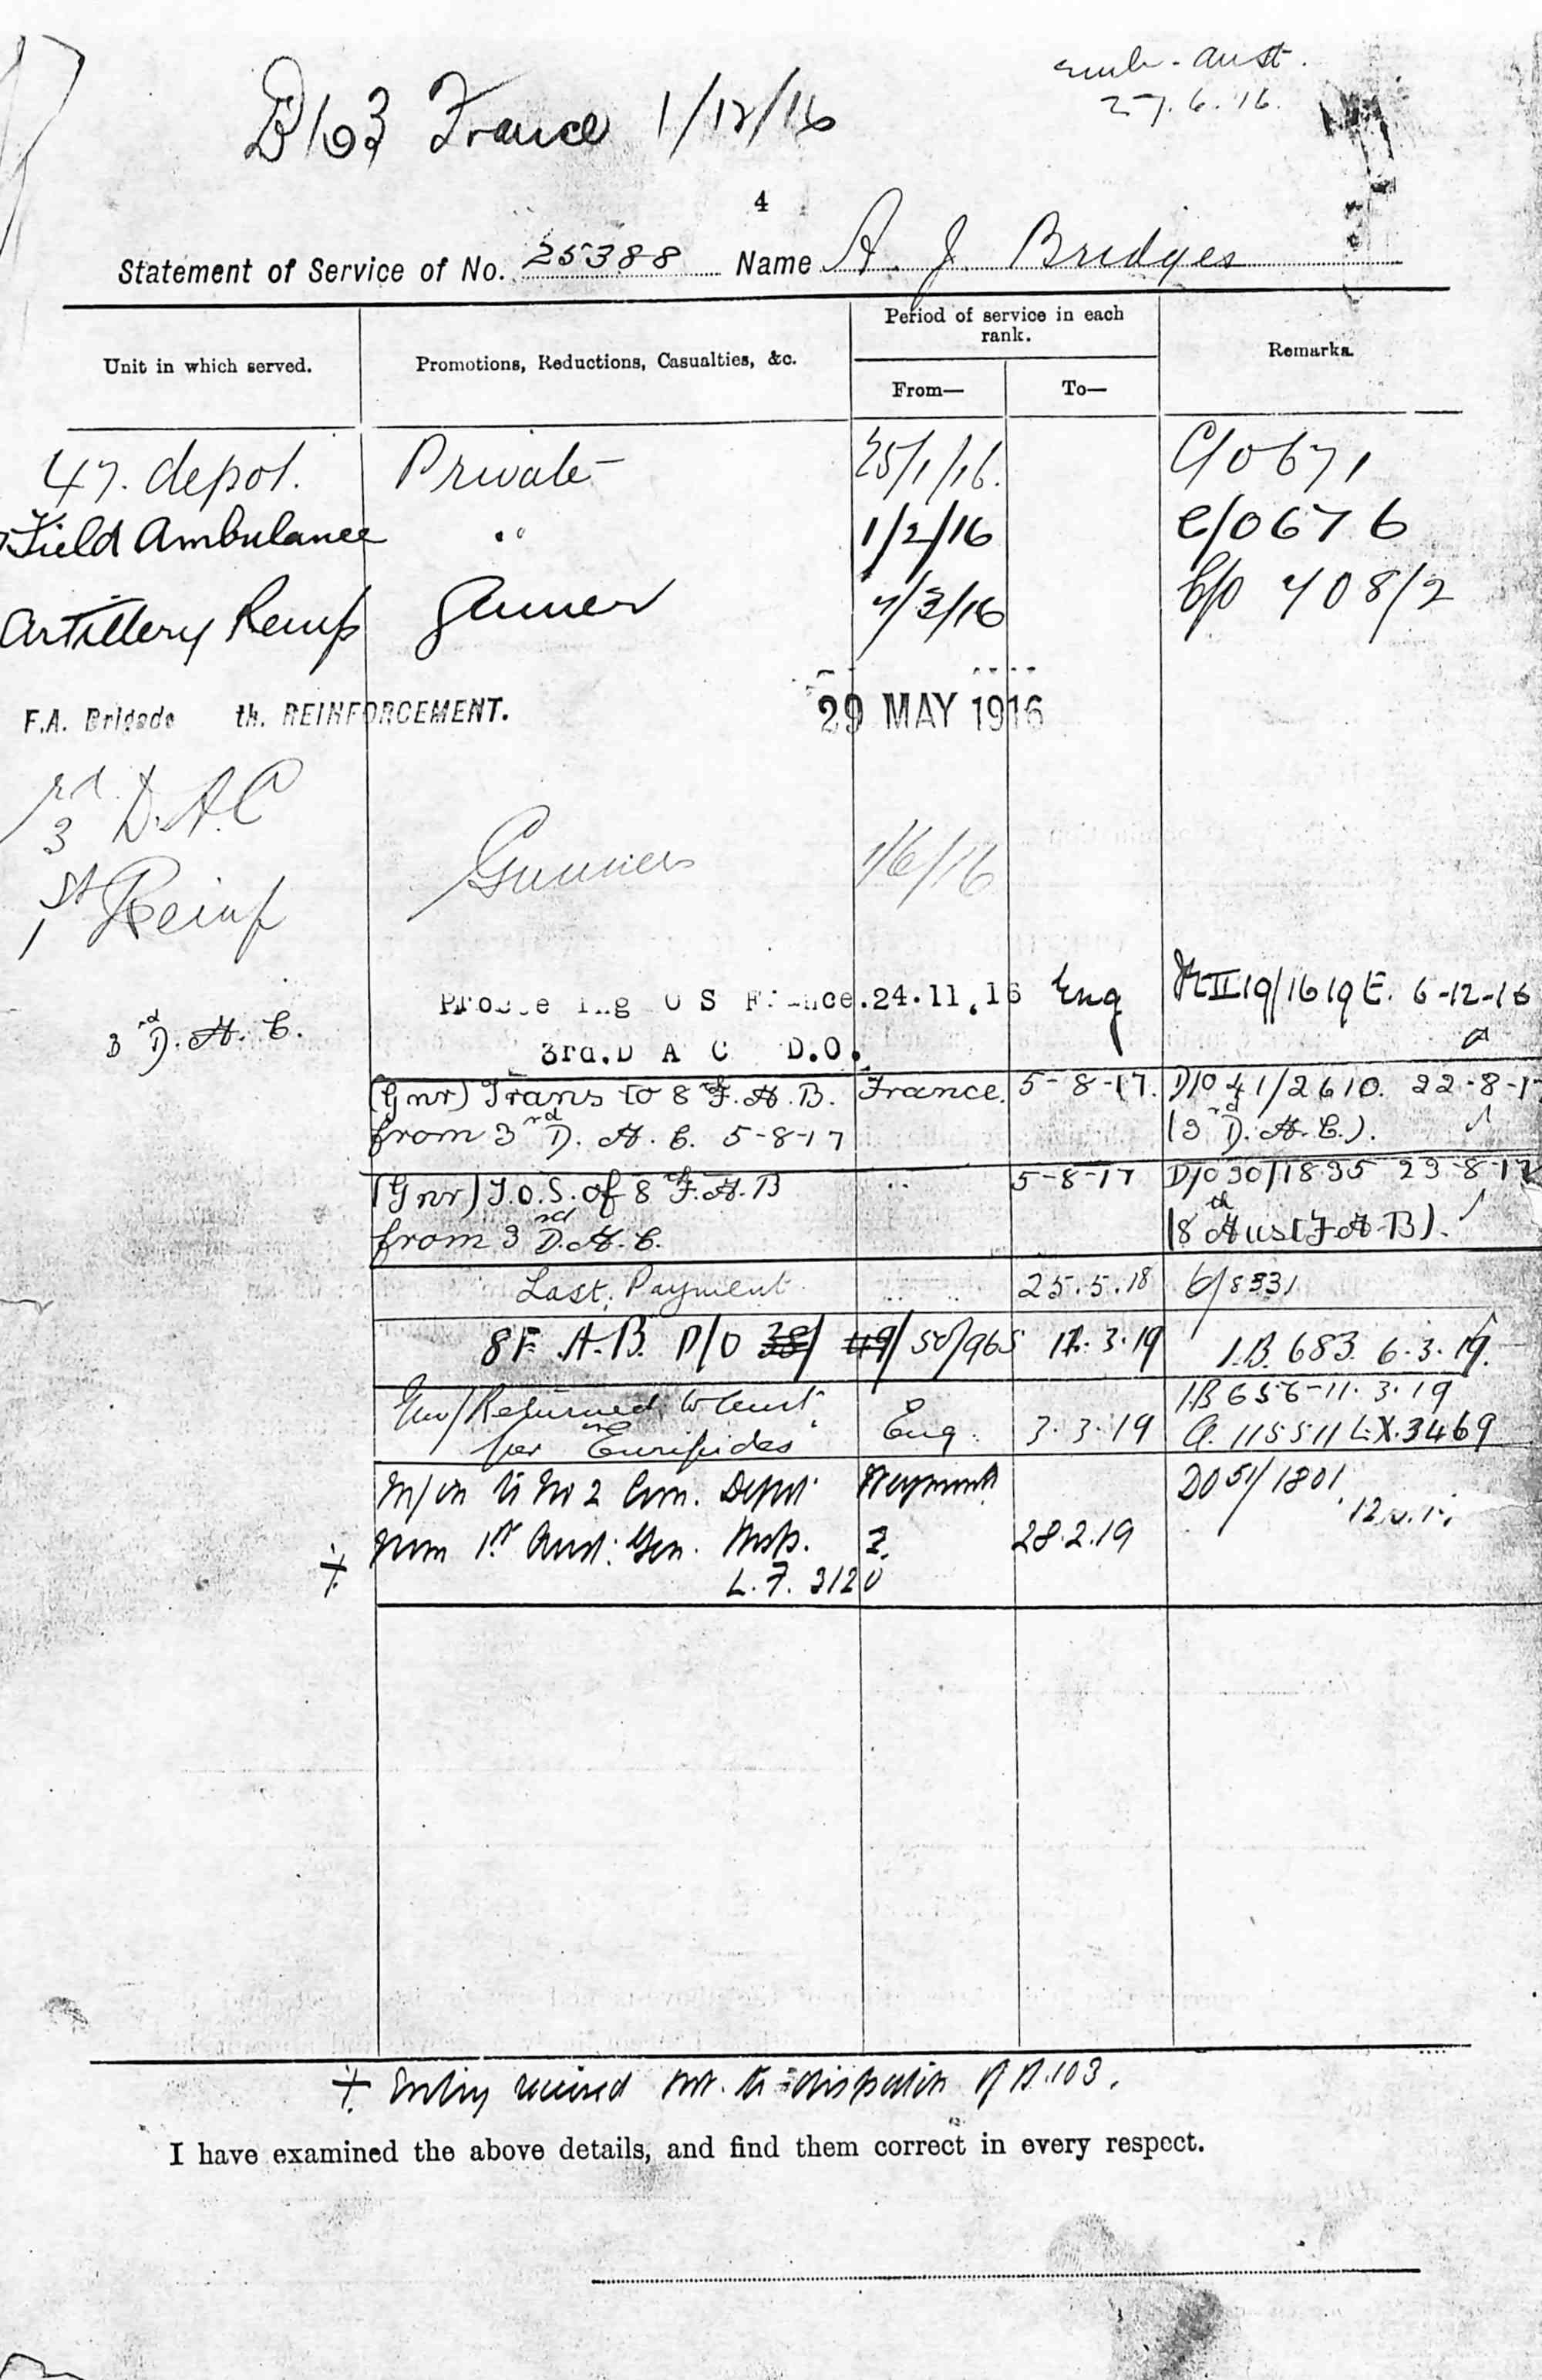 emb - Aust.
27.6.16.
B103 France 1/12/16
4
Statement of Service of No. 25388 Name A. J. Bridges
Unit in which served. Promotions, Reductions, Casualties, &c. Period of service in each rank. From— To— Remarks.
47. depot. Private 25/1/16. C/o 671
Field Ambulance " 1/2/16 C/o 676
Artillery Reinf Gunner 7/3/16 C/o 708/2
F.A. Brigade th. REINFORCEMENT. 29 MAY 1916
3rd D.A.C
Gunner 1/6/16
1st Reinf
Proceeding O S France. 24.11.16 Eng 19/1619E. 6-12-16
3rd D.A.C. 3rd. D A C D.O.
(Gnr) Trans to 8th F.A.B. France. 5-8-17. D/O 41/2610. 22-8-17
from 3rd D.A.C. 5-8-17 (3rd D.A.C.).
(Gnr) T.O.S. of 8th F.A.B " 5-8-17 D/O 30/1835 23-8-17
from 3rd D.A.C. (8th Aust F.A.B).
Last Payment " " 25.5.18 6/8331
8 F.A.B. D/O 38/ 49/ 50/965 12.3.19 I.B. 683. 6.3.19.
Gnr/Returned to Aust. I.B 656-11.3.19
per Euripides Eng. 3.3.19 A. 115511 L.X.3469
M/in to No 2 Com. Depot Weymouth DO 51/1801
from 1st Aust. Gen. Hosp. 28.2.19
L.F. 3120
Entry received to dispatch of B.103.
I have examined the above details, and find them correct in every respect.